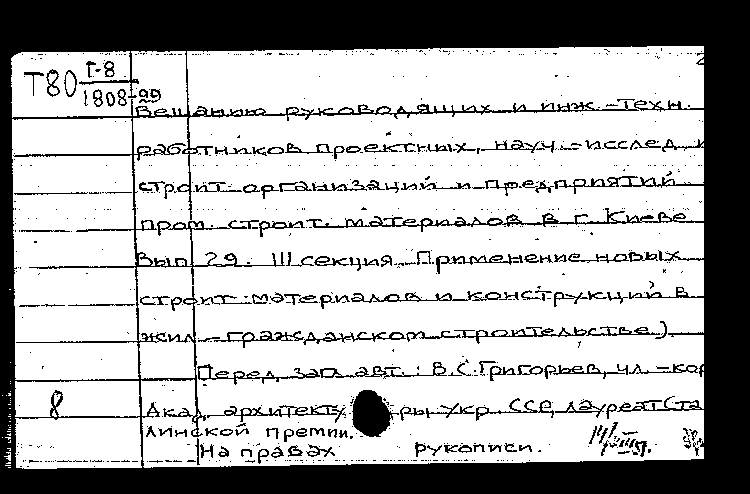 Т80 Г-8
1808-99
вещанию руководящих и инж.-техн.
работников проектных, науч.-исслед и
строит. организаций и предприятий
пром. строит. материалов в г. Киеве
Вып 29. III секция. Применение новых
строит. материалов и конструкций в
жил.-гражданском строительстве.)
Перед загл. авт.: В.С. Григорьев, чл.-кор
8 Акад. архитекту ры Укр. ССР, лауреат Ста
линской премии.
На правах рукописи.